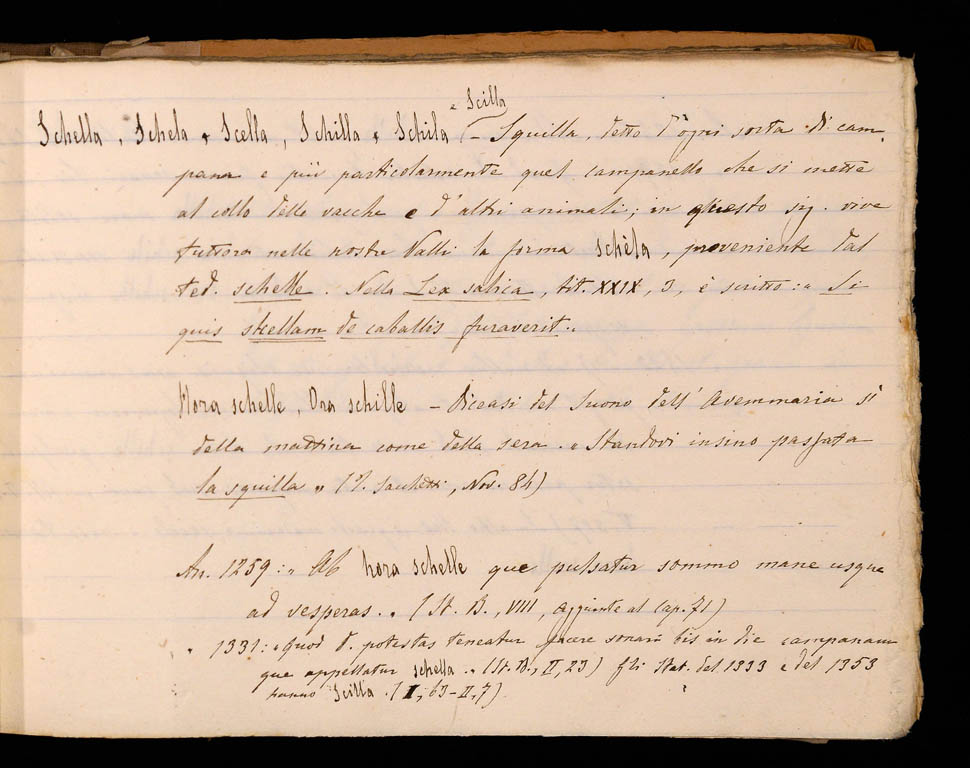 e Scilla
Schella, Schela e Scella, Schilla e Schila (- Squilla, detto d'ogni sorta di cam-
pana e più particolarmente quel campanello che si mette
al collo delle vacche e d'altri animali; in questo sig. vive
tuttora nelle nostre Valli la forma schèla, proveniente dal
ted. schelle. Nella Lex salica, tit. XXIX, 3, è scritto: « Si
quis skellam de caballis furaverit.»
Hora schelle, Ora schille - Diceasi del suono dell'Avemmaria sì
della mattina come della sera. « Standovi insino passata
la squilla » (F. Sacchetti, Nov. 84)
An. 1259: « Ab hora schelle que pulsatur sommo mane usque
ad vesperas. » (St. B., VIII, aggiunte al cap. 71)
" 1331: « quod d. potestas teneatur facere sonari bis in die campanam
que appellatur schella. » (St. B., II, 23) Gli Stat. del 1333 e del 1353
hanno Scilla. (I, 63-II, 7)